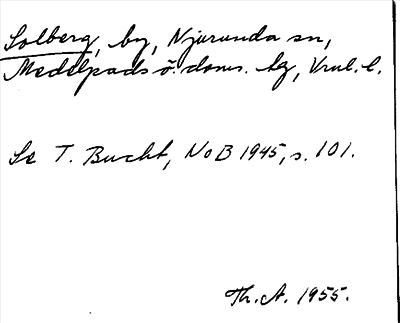 Solberg, by, Njurunda sn,
Medelpads ö. doms. hg, Vnl. l.
Se T. Bucht, NoB 1945, s. 101.
Th. A. 1955.